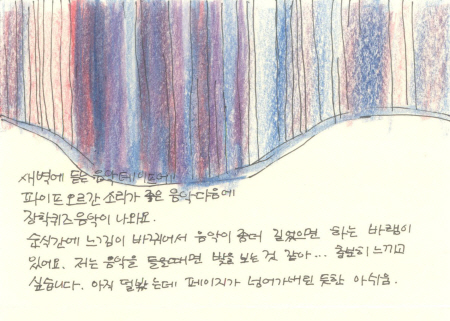 새벽에 듣는 음악테이프에
파이프 오르간 소리가 좋은 음악다음에
장학퀴즈음악이 나와요.
순식간에 느낌이 바뀌어서 음악이 좀더 길었으면 하는 바램이
있어요. 저는 음악을 들을때면 빛을 보는 것 같아... 충분히 느끼고
싶습니다. 아직 덜봤는데 페이지가 넘어가버린 듯한 아쉬움.